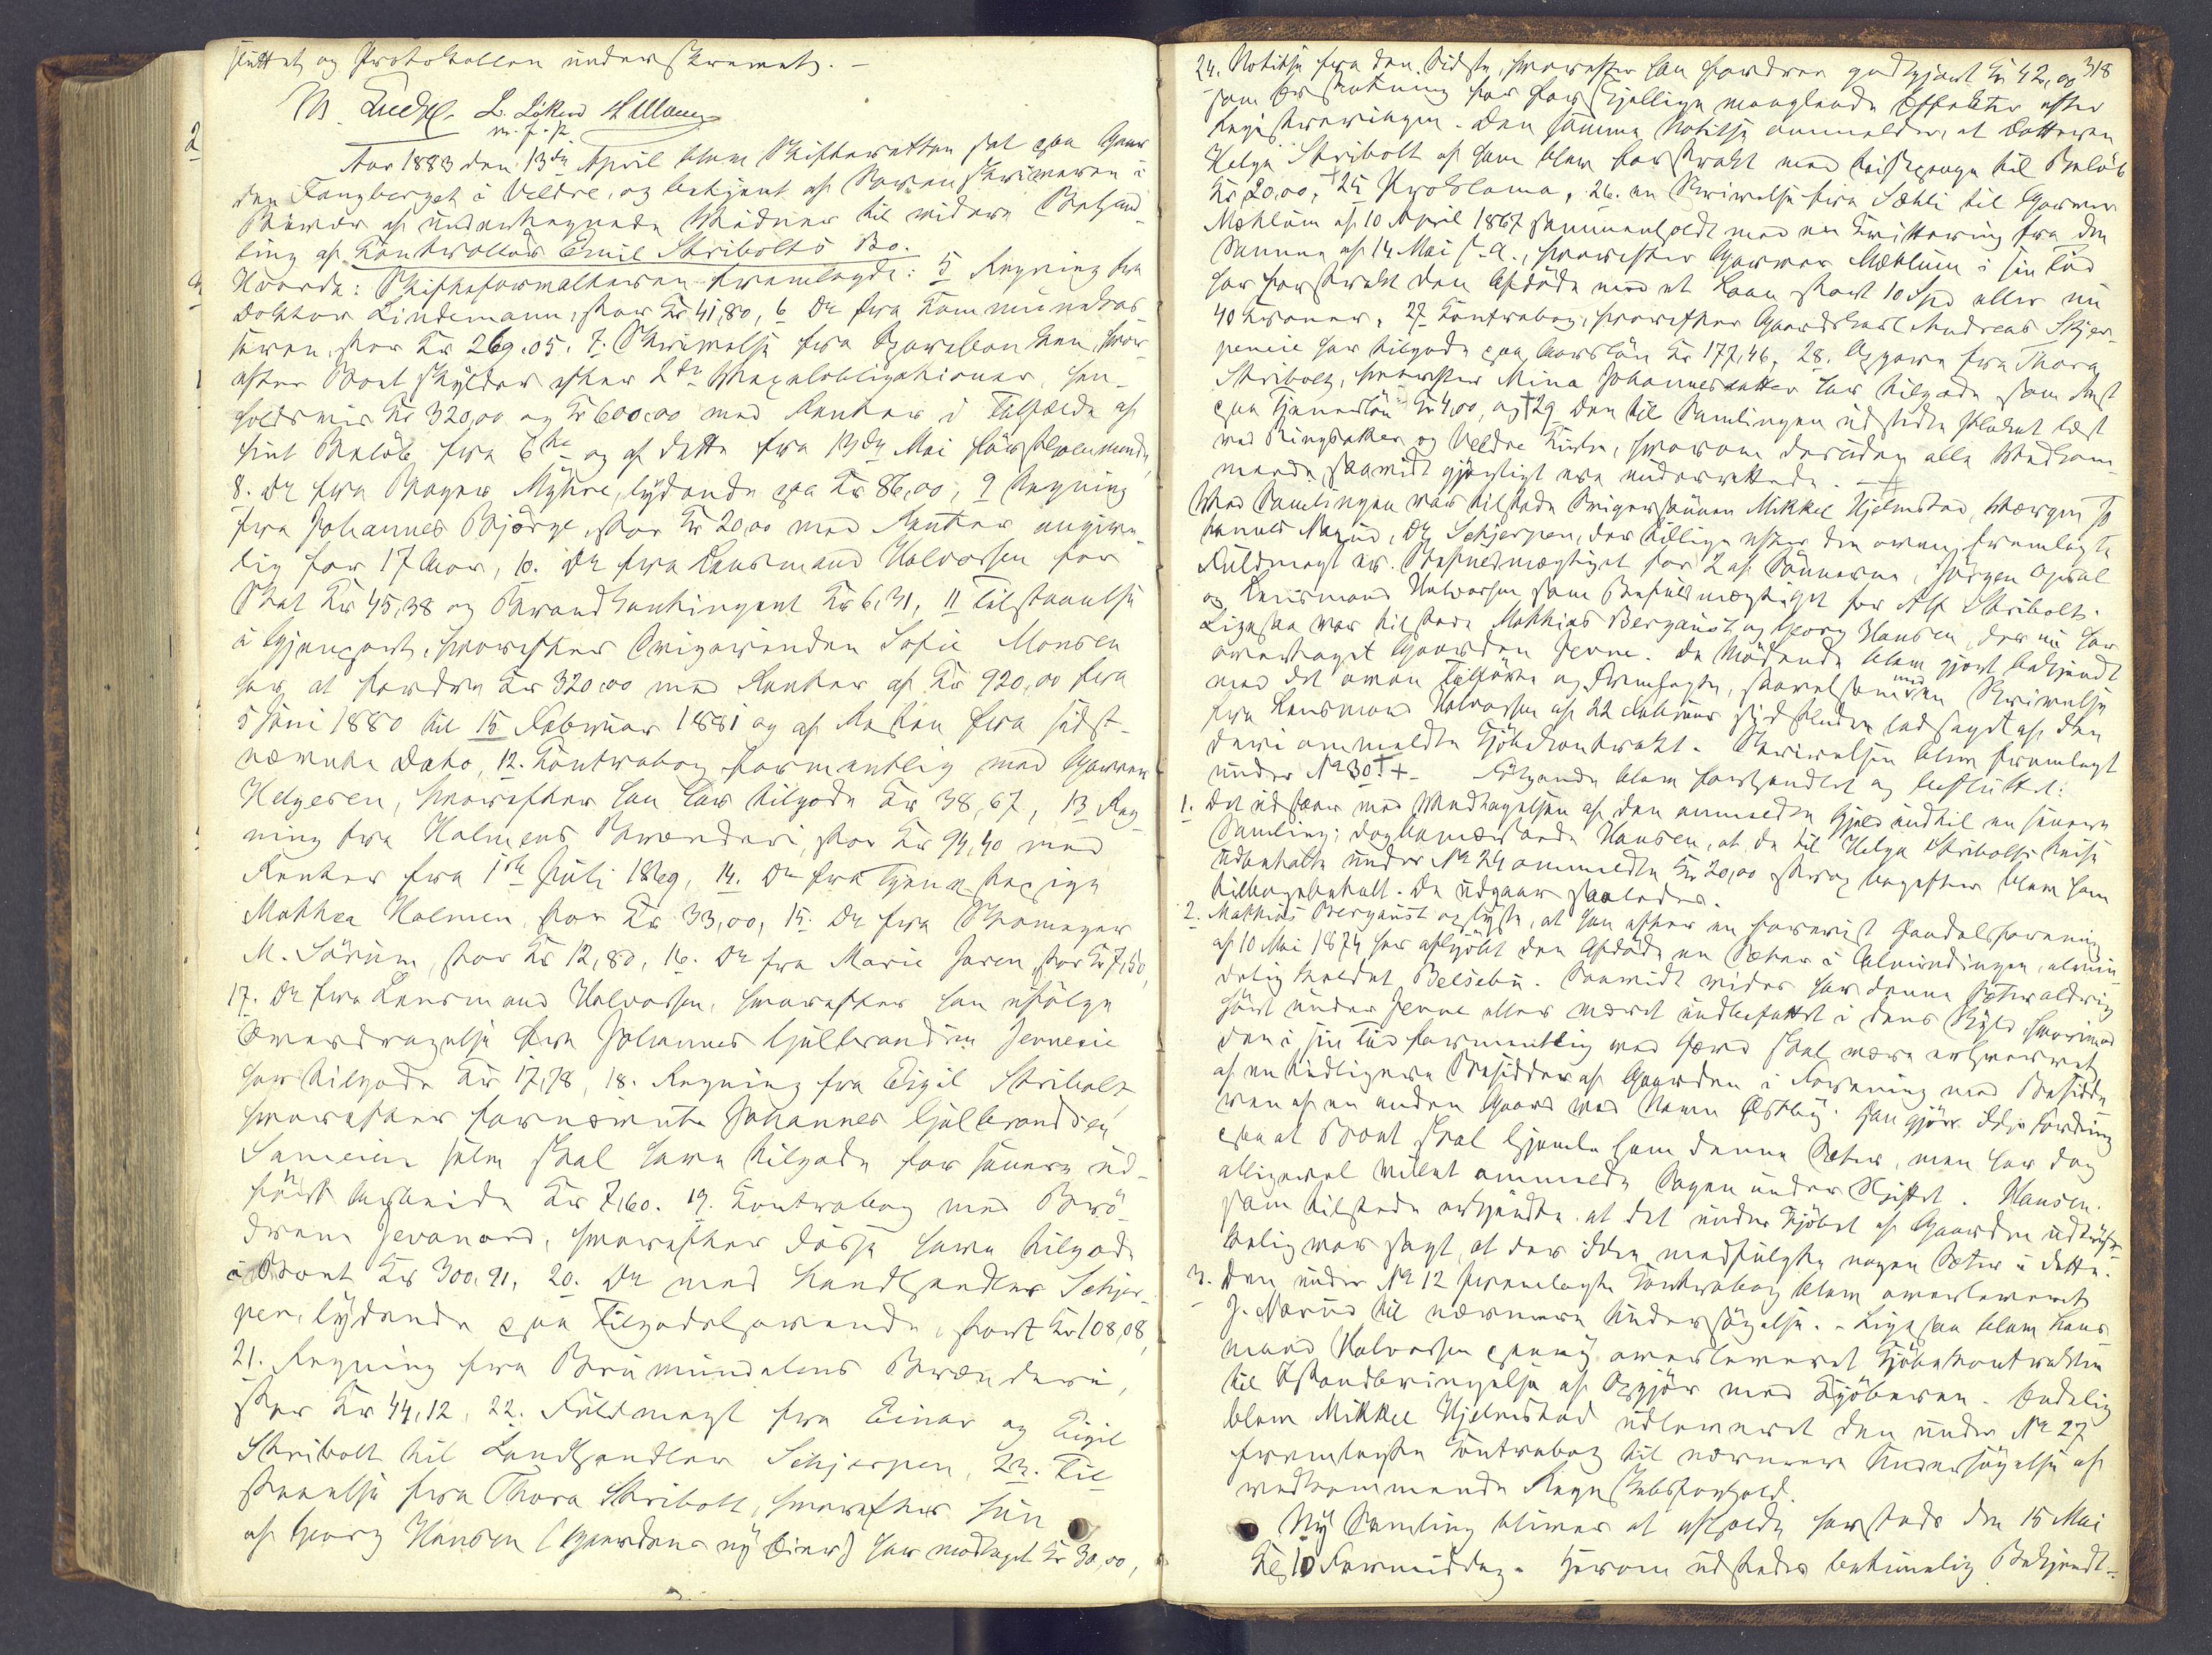 sluttet og Protokollen underskrevet. –
M. Lied L. Löken
m. f. P.
2
Aar 1883 den 13de April blev Skifteretten sat paa Gaar
den Fangberget i Veldre, og betjent af Sorenskriveren i
Nærvær af undertegnede Vidner til videre Behand-
ling af Kontrollør Emil Stribolts Bo.
Hvorda: Skifteforvalteren fremlagde: 5 Regning fra
Doktor Lindemann, stor Kr 41,80, 6 Do fra Kommunekas-
seren, stor Kr 269.05. 7. Skrivelse fra Sparebanken, hvor-
efter Boet skylder efter 2de Vexelobligationer, hen-
holdsvis Kr 320,00 og Kr 600,00 med Renter i Tilfælde af
hint Beløb fra 6te og af dette fra 13de Mai førstkommende,
8. Do fra Bager Myhre, lydende paa Kr 86,00, 9 Regning
fra Johannes Bjørge, stor Kr 20,00 med Renter angive-
lig for 17 Aar, 10. Do fra Lensmand Halvorsen for
Skat Kr 45,38 og Brandkontingent Kr 6,31, 11 Tilstaaelse
i Gjenpart, hvorefter Svigerinden Sofie Monsen
har at fordre Kr 320,00 med Renter af Kr 920,00 fra
5 Juni 1880 til 15 Februar 1881 og af Resten fra sidst-
nævnte Dato, 12. Kontrabog formentlig med Garver
Helgesen, hvorefter han har tilgode Kr 38,67, 13 Reg-
ning fra Holmens Brænderi, stor Kr 94,40 med
Renter fra 1ste Juli 1869, 14. Do fra Tjenestepige
Mathea Holmen, stor Kr 33,00, 15. Do fra Skomager
M. Sörum, stor Kr 12,80, 16. Do fra Marie Joren, stor Kr 7,50,
17. Do fra Lensmand Halvorsen, hvorefter han ifølge
Overdragelse fra Johannes Gulbrandsen Jenneeie
har tilgode Kr 17,78, 18. Regning fra Eigil Stribolt,
hvorefter fornævnte Johannes Gulbrandsen
selv skal have tilgode for senere ud-
ført Arbeide Kr 7,60. 19. Kontrabog med Brö-
drene Jevanord, hvorefter disse have tilgode
i Boet Kr 300,91, 20. Do med Landhandler Schjer-
pen, lydende paa Tilgodehavende, stort Kr 108,08,
21. Regning fra Brumunddalens Brænderi,
stor Kr 44,12, 22. Fuldmagt fra Einar og Eigil
Stribolt til Landhandler Schjerpen, 23. Til-
staaelse fra Thora Stribolt, hvorefter hun
af Georg Hansen (Gaardens ny Eier) har modtaget Kr 30,00,
318
24. Notitse fra den Sidste, hvorefter han fordrer godtgjort Kr 42,00
som Erstatning for forskjellige manglende Effekter efter
Registreringen. Den samme Notitse anmelder, at Datteren
Helga Stribolt af ham blev forstrakt med Reisepenge til Beløb
Kr 20,00, 25 Proklama, 26. en Skrivelse fra Sæhli til Garver
Mæhlum af 10 April 1867 sammenholdt med en Kvittering fra den
Samme af 14 Mai s. A., hvorefter Garver Mæhlum i sin Tid
har forstrakt den Afdøde med et Laan stort 10 Spd eller nu
40 Kroner, 27 Kontrabog, hvorefter Gaardskarl Andreas Skjer-
peneie har tilgode paa Aarsløn Kr 177,46, 28. Opgave fra Thora
Stribolt, hvorefter Mina Johannesdatter har tilgode som Rest
paa Tjenesløn Kr 4,00, og 29 den til Samlingen udstedte Plakat læst
ved Ringsaker og Veldre Kirke, hvorom desuden alle Vedkom-
mende saavidt gjørligt ere underrettede. –
Ved Samlingen var tilstede Svigersønnen Mikkel Hjelmstad, Værgen Jo-
hannes Narud, Do Schjerpen, der tillige efter den ovenf. fremlagte
Fuldmagt er Befuldmægtiget for 2 af Sønnerne, Jörgen Opsal
og Lensmand Halvorsen som Befuldmægtiget for Alf Stribolt.
Ligesaa var tilstede Mathias Bergaust og Georg Hansen, der nu har
overtaget Gaarden Jenne. De Mødende blev gjort bekjendt
med det oven Tilførte og Fremlagte, saavelsom med en Skrivelse
fra Lensmand Halvorsen af 22 Februar sidstleden ledsaget af den
deri ommeldte Kjøbekontrakt. Skrivelsen blev fremlagt
under No 30. Følgende blev forhandlet og besluttet:
1. Det udsættes med Vedtagelsen af den anmeldte Gjæld indtil en senere
Samling; dog bemærkede Hansen, at de til Helga Stribolts Reise
udbetalte under No 24 ommeldte Kr 20,00 strax bagefter blev ham
tilbagebetalt. De udgaar saaledes.
2. Mathias Bergaust oplyste, at han efter en forevist Handelsforening
af 10 Mai 1874 har afkjøbt den Afdøde en Sæter i Almindingen, almin-
delig kaldet Belsebu. Saavidt vides har denne Sæter aldrig
hørt under Jenne eller været indbefattet i dens Skyld, hvorimod
den i sin Tid formentlig ved Hævd skal være erhvervet
af en tidligere Besidder af Gaarden i Forening med Besidde-
ren af en anden Gaard ved Navn Østby. Han gjør ikke Fordring
paa at Boet skal hjemle ham denne Sæter, men har dog
alligevel villet anmelde Sagen under Skiftet. Hansen
som tilstede erkjendte, at det under Kjøbet af Gaarden udtrykke-
kelig var sagt, at der ikke medfulgte nogen Sæter i dette.
3. Den under No 12 fremlagte Kontrabog blev overleveret
J. Narud til nærmere Undersøgelse. – Ligesaa blev Lens-
mand Halvorsen paany overleveret Kjøbekontrakten
til Istandbringelse af Opgjør med Kjøberen. Endelig
blev Mikkel Hjelmstad udleveret den under No 27
fremlagte Kontrabog til nærmere Undersøgelse af
vedkommende Regnskabsforhold.
Ny Samling bliver at afholde hersteds den 15 Mai
Kl. 10 Formiddag. Herom udstedes betimelig Bekjendt-